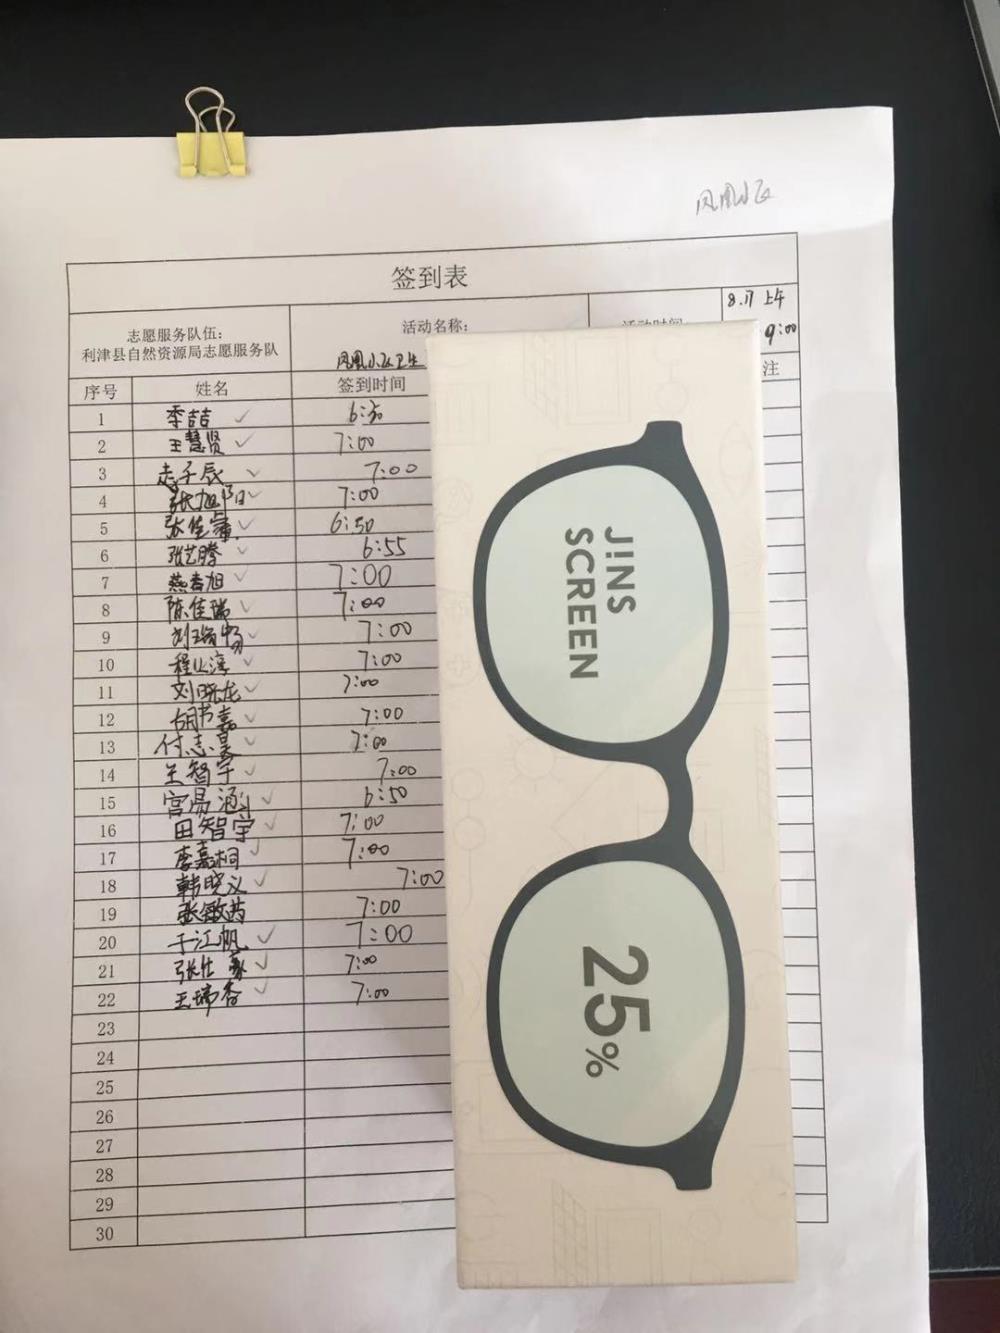 凤凰小区
签到表
8.17 上午
志愿服务队伍:
利津县自然资源局志愿服务队
活动名称:
凤凰小区卫生
活动时间
9:00
序号 姓名 签到时间 注
1 李喆 6:30
2 王慧贤 7:00
3 子辰 7:00
4 张旭阳 7:00
5 张佳 6:50
6 张艺腾 6:55
7 燕春旭 7:00
8 陈佳瑞 7:00
9 刘瑞畅 7:00
10 程 7:00
11 刘晓龙 7:00
12 胡书嘉 7:00
13 付志昊 7:00
14 王智宇 7:00
15 宫易涵 6:50
16 田智宇 7:00
17 李嘉桐 7:00
18 韩晓义 7:00
19 张敏茜 7:00
20 于江帆 7:00
21 张仕 7:00
22 王瑞香 7:00
23
24
25
26
27
28
29
30
JINS
SCREEN
25%